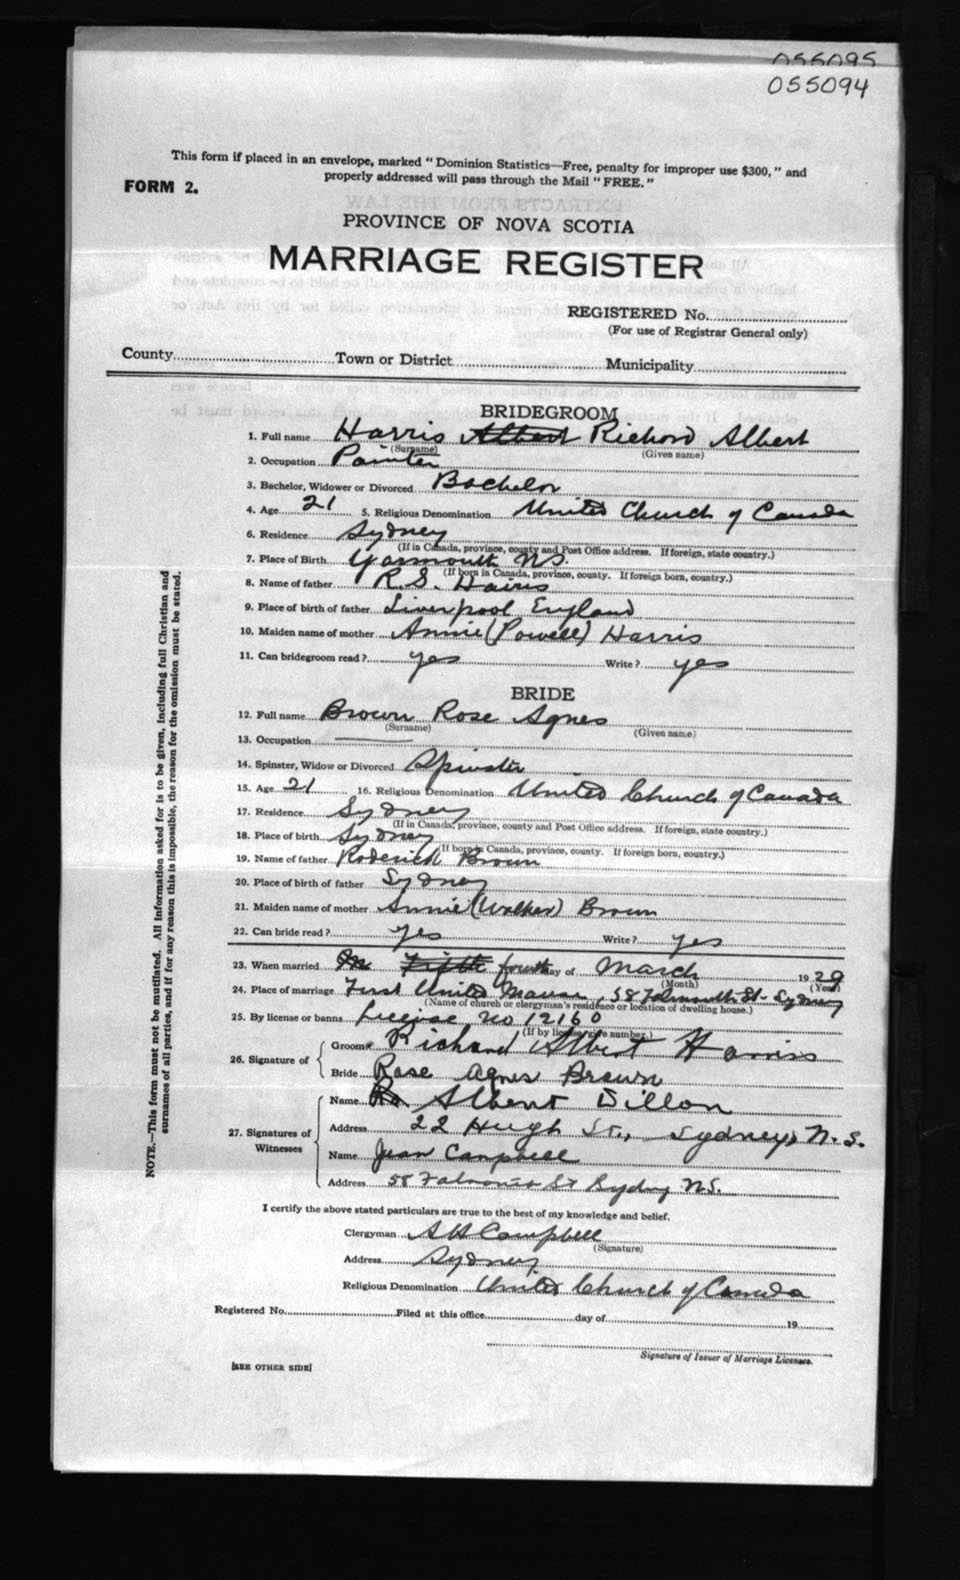 055095
055094
This form if placed in an envelope, marked "Dominion Statistics—Free, penalty for improper use $300," and
FORM 2. properly addressed will pass through the Mail "FREE."
PROVINCE OF NOVA SCOTIA
MARRIAGE REGISTER
REGISTERED No.
(For use of Registrar General only)
County Town or District Municipality
BRIDEGROOM
1. Full name Harris Albert Richard Albert
(Surname) (Given name)
2. Occupation Painter
3. Bachelor, Widower or Divorced Bachelor
4. Age 21 5. Religious Denomination United Church of Canada
6. Residence Sydney
(If in Canada, province, county and Post Office address. If foreign, state country.)
7. Place of Birth Yarmouth N.S.
(If born in Canada, province, county. If foreign born, country.)
8. Name of father R.S. Harris
9. Place of birth of father Liverpool England
10. Maiden name of mother Annie (Powell) Harris
11. Can bridegroom read? yes Write? yes
BRIDE
12. Full name Brown Rose Agnes
(Surname) (Given name)
13. Occupation
14. Spinster, Widow or Divorced Spinster
15. Age 21 16. Religious Denomination United Church of Canada
17. Residence Sydney
(If in Canada, province, county and Post Office address. If foreign, state country.)
18. Place of birth Sydney
(If born in Canada, province, county. If foreign born, country.)
19. Name of father Roderick Brown
20. Place of birth of father Sydney
21. Maiden name of mother Annie (Walker) Brown
22. Can bride read? yes Write? yes
23. When married Fifth fourth day of March 1929
(Month) (Year)
24. Place of marriage First United Manse, 58 Falmouth St- Sydney
(Name of church or clergyman's residence or location of dwelling house.)
25. By license or banns License No 12160
(If by license give number.)
26. Signature of Groom Richard Albert Harris
Bride Rose Agnes Brown
27. Signatures of Witnesses Name Albert Dillon
Address 22 Hugh St., Sydney, N.S.
Name Jean Campbell
Address 58 Falmouth St Sydney N.S.
I certify the above stated particulars are true to the best of my knowledge and belief.
Clergyman A H Campbell
(Signature)
Address Sydney
Religious Denomination United Church of Canada
Registered No. Filed at this office day of 19
Signature of Issuer of Marriage Licenses.
[SEE OTHER SIDE]
NOTE.—This form must not be mutilated. All information asked for is to be given, including full Christian and
surnames of all parties, and if for any reason this is impossible, the reason for the omission must be stated.